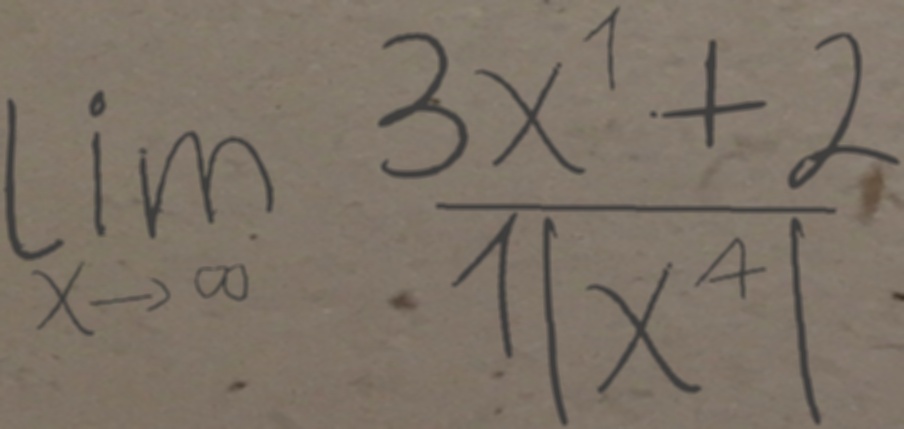 lim_{x \to \infty} \frac{3x^1 + 2}{1|x^4|}